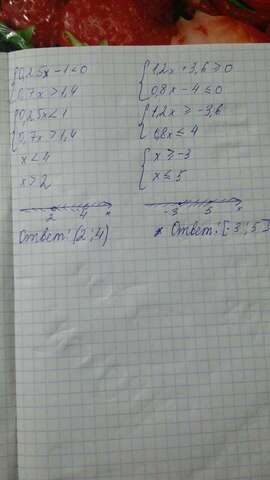 0,25x - 1 < 0
0,7x > 1,4
0,25x < 1
0,7x > 1,4
x < 4
x > 2
2 4 x
Ответ: (2; 4)
1,2x + 3,6 ≥ 0
0,8x - 4 ≤ 0
1,2x ≥ -3,6
0,8x ≤ 4
x ≥ -3
x ≤ 5
-3 5 x
Ответ: [-3; 5]